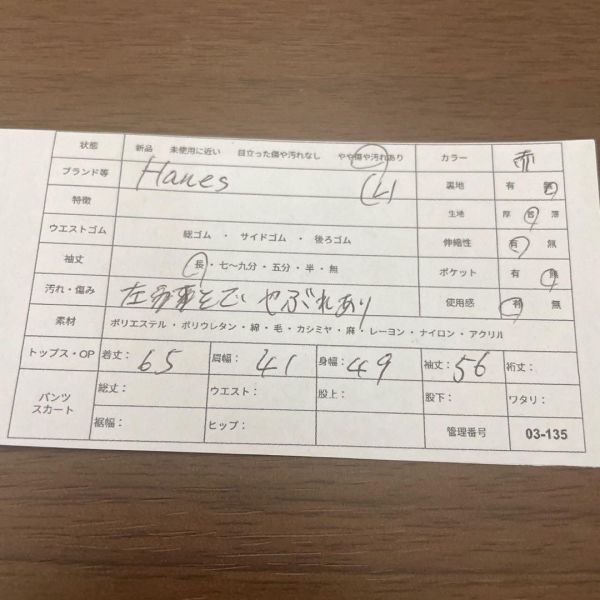 状態 新品 未使用に近い 目立った傷や汚れなし やや傷や汚れあり カラー 赤
ブランド等 Hanes 裏地 有 無
特徴 (L) 生地 厚 普 薄
ウエストゴム 総ゴム ・ サイドゴム ・ 後ろゴム 伸縮性 有 無
袖丈 長・七〜九分・五分・半・無 ポケット 有 無
汚れ・傷み 左 そで やぶれあり 使用感 有 無
素材 ポリエステル・ポリウレタン・綿・毛・カシミヤ・麻・レーヨン・ナイロン・アクリル
トップス・OP 着丈: 65 肩幅: 41 身幅: 49 袖丈: 56 裄丈:
パンツ スカート 総丈: ウエスト: 股上: 股下: ワタリ:
裾幅: ヒップ: 管理番号 03-135